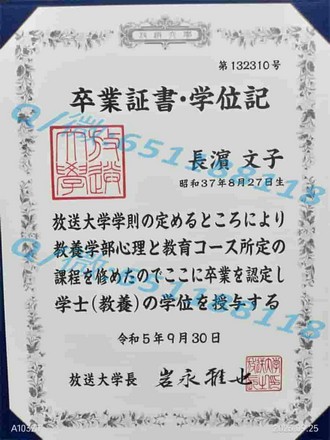 放送大学
第132310号
卒業証書・学位記
長濵 文子
昭和37年8月27日生
放送大学学則の定めるところにより
教養学部心理と教育コース所定の
課程を修めたのでここに卒業を認定し
学士(教養)の学位を授与する
令和5年9月30日
放送大学長 岩永雅也